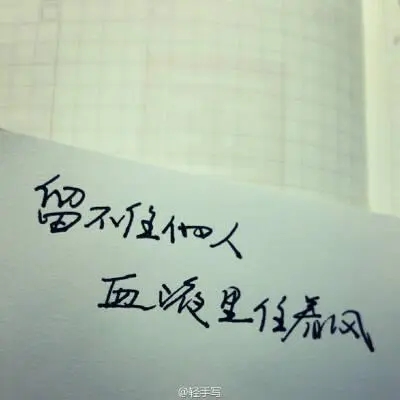 留不住他人
血液里住着风
@轻手写